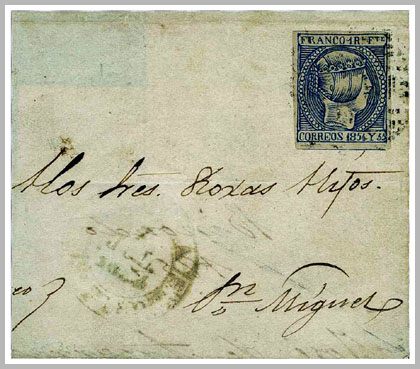 FRANCO 1 Rl Fte
CORREOS 1854 Y 55
A los Sres. Roxas Hijos.
Sn Miguel